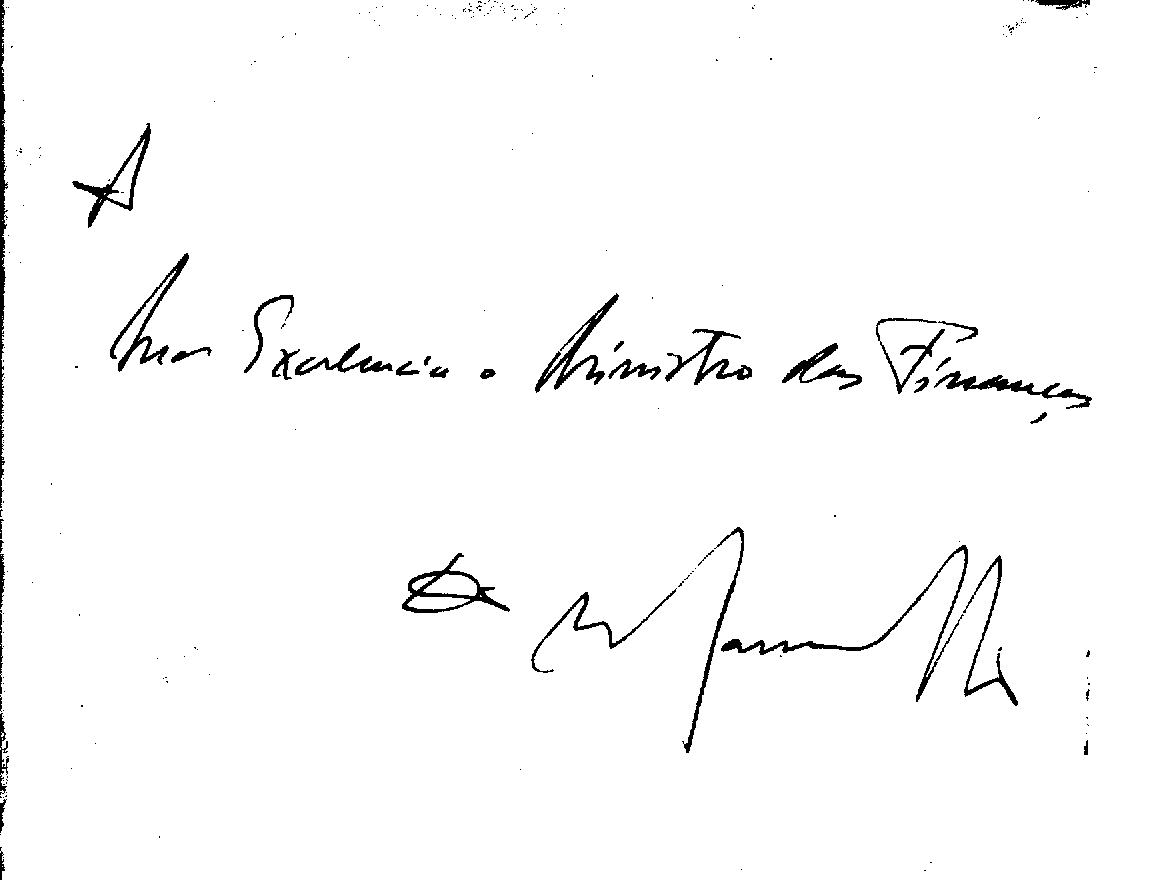 A
Sua Excelencia o Ministro das Finanças